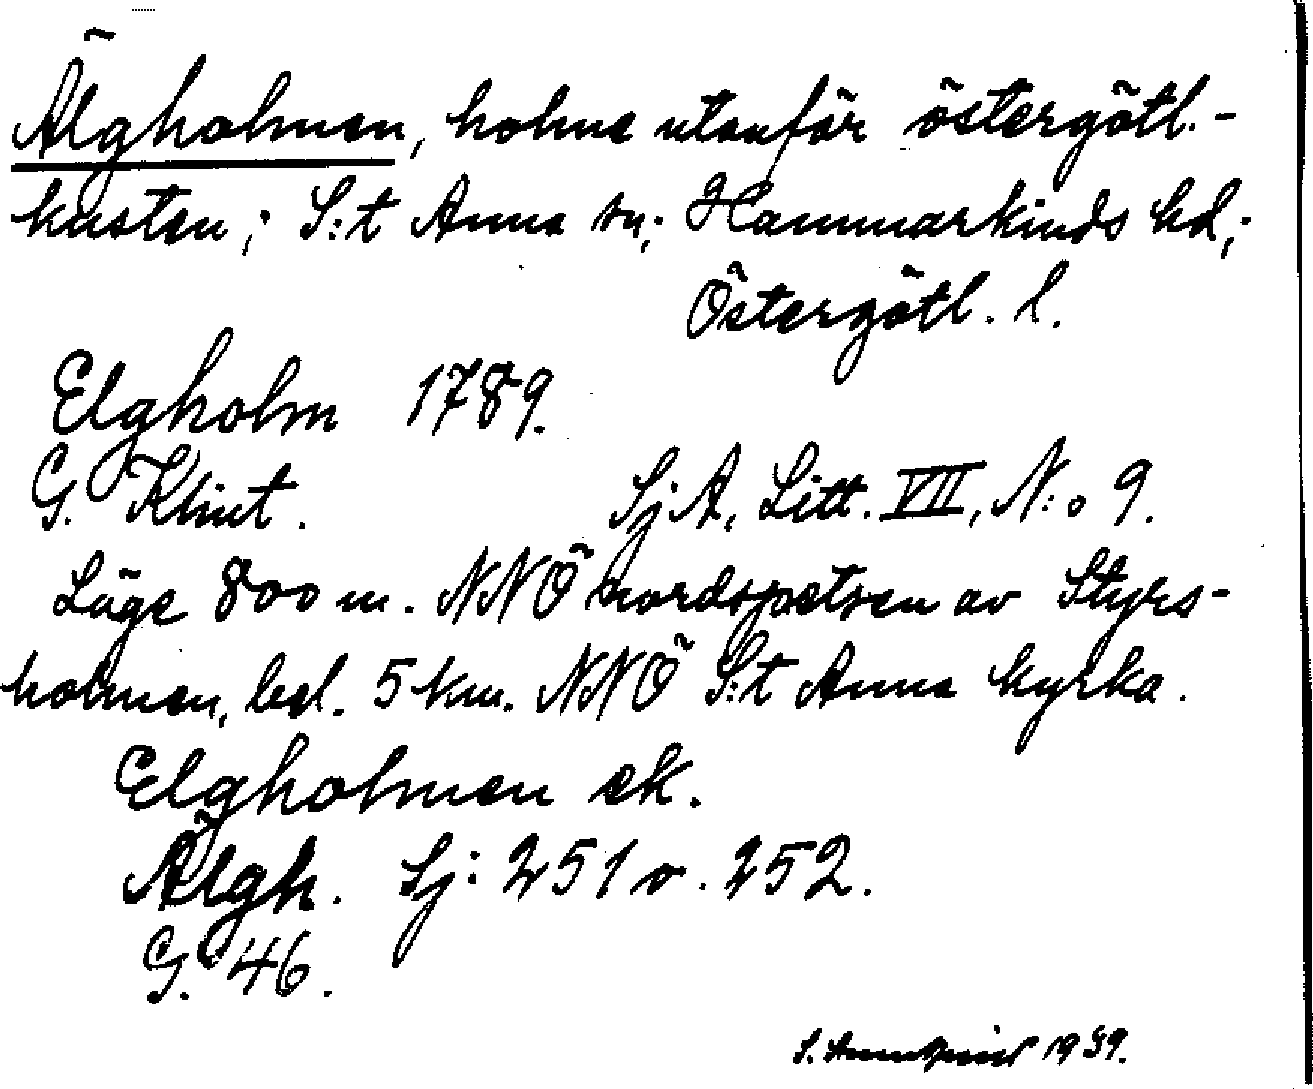 Älgholmen, holme utanför östergötl.-
kusten; S:t Anna sn; Hammarkinds hd;
Östergötl. l.
Elgholm 1789.
G. Klint. SjA, Litt. VII, N:o 9.
Läge 800 m. NNÖ nordspetsen av Styrs-
holmen, bel. 5 km. NNÖ S:t Anna kyrka.
Elgholmen ek.
Älgh. Sj: 251 o. 252.
G. 46.
S. 1939.